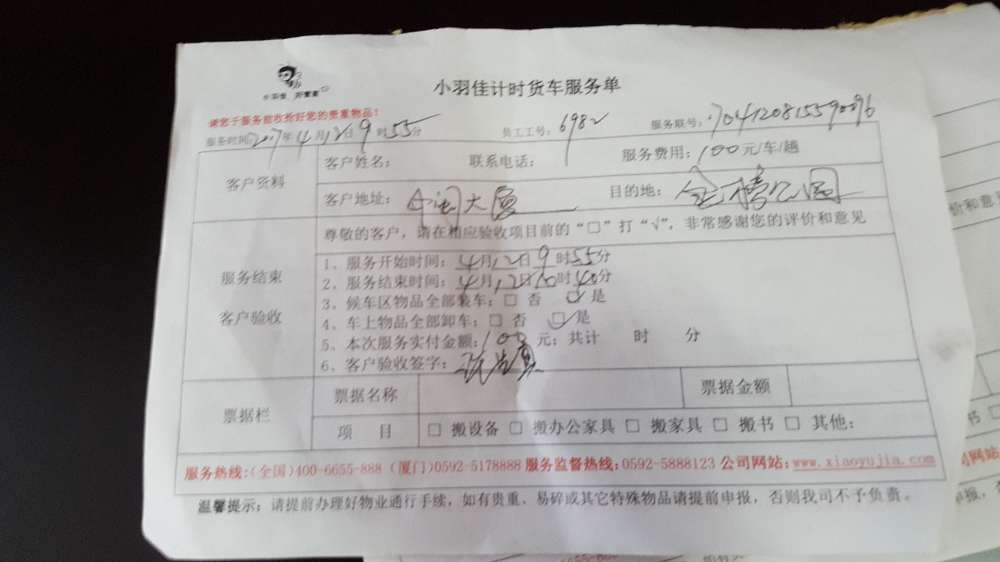 小羽佳计时货车服务单
请您于服务前收拾好您的贵重物品!
服务时间2017年4月12日9时55分 员工工号:6982 服务联号:
客户资料
客户姓名: 联系电话: 服务费用:100元/车/趟
客户地址: 大厦 目的地: 金榜公园
尊敬的客户，请在相应验收项目前的“□”打“√”，非常感谢您的评价和意见
服务结束
客户验收
1、服务开始时间:4月12日9时55分
2、服务结束时间:4月12日10时40分
3、候车区物品全部装车:□ 否 ☑ 是
4、车上物品全部卸车:□ 否 ☑ 是
5、本次服务实付金额:100元;共计 时 分
6、客户验收签字:
票据栏
票据名称 票据金额
项 目 □ 搬设备 □ 搬办公家具 □ 搬家具 □ 搬书 □ 其他:
服务热线:(全国)400-6655-888 (厦门)0592-5178888 服务监督热线:0592-5888123 公司网站:www.xiaoyujia.com
温馨提示:请提前办理好物业通行手续，如有贵重、易碎或其它特殊物品请提前申报，否则我司不予负责。